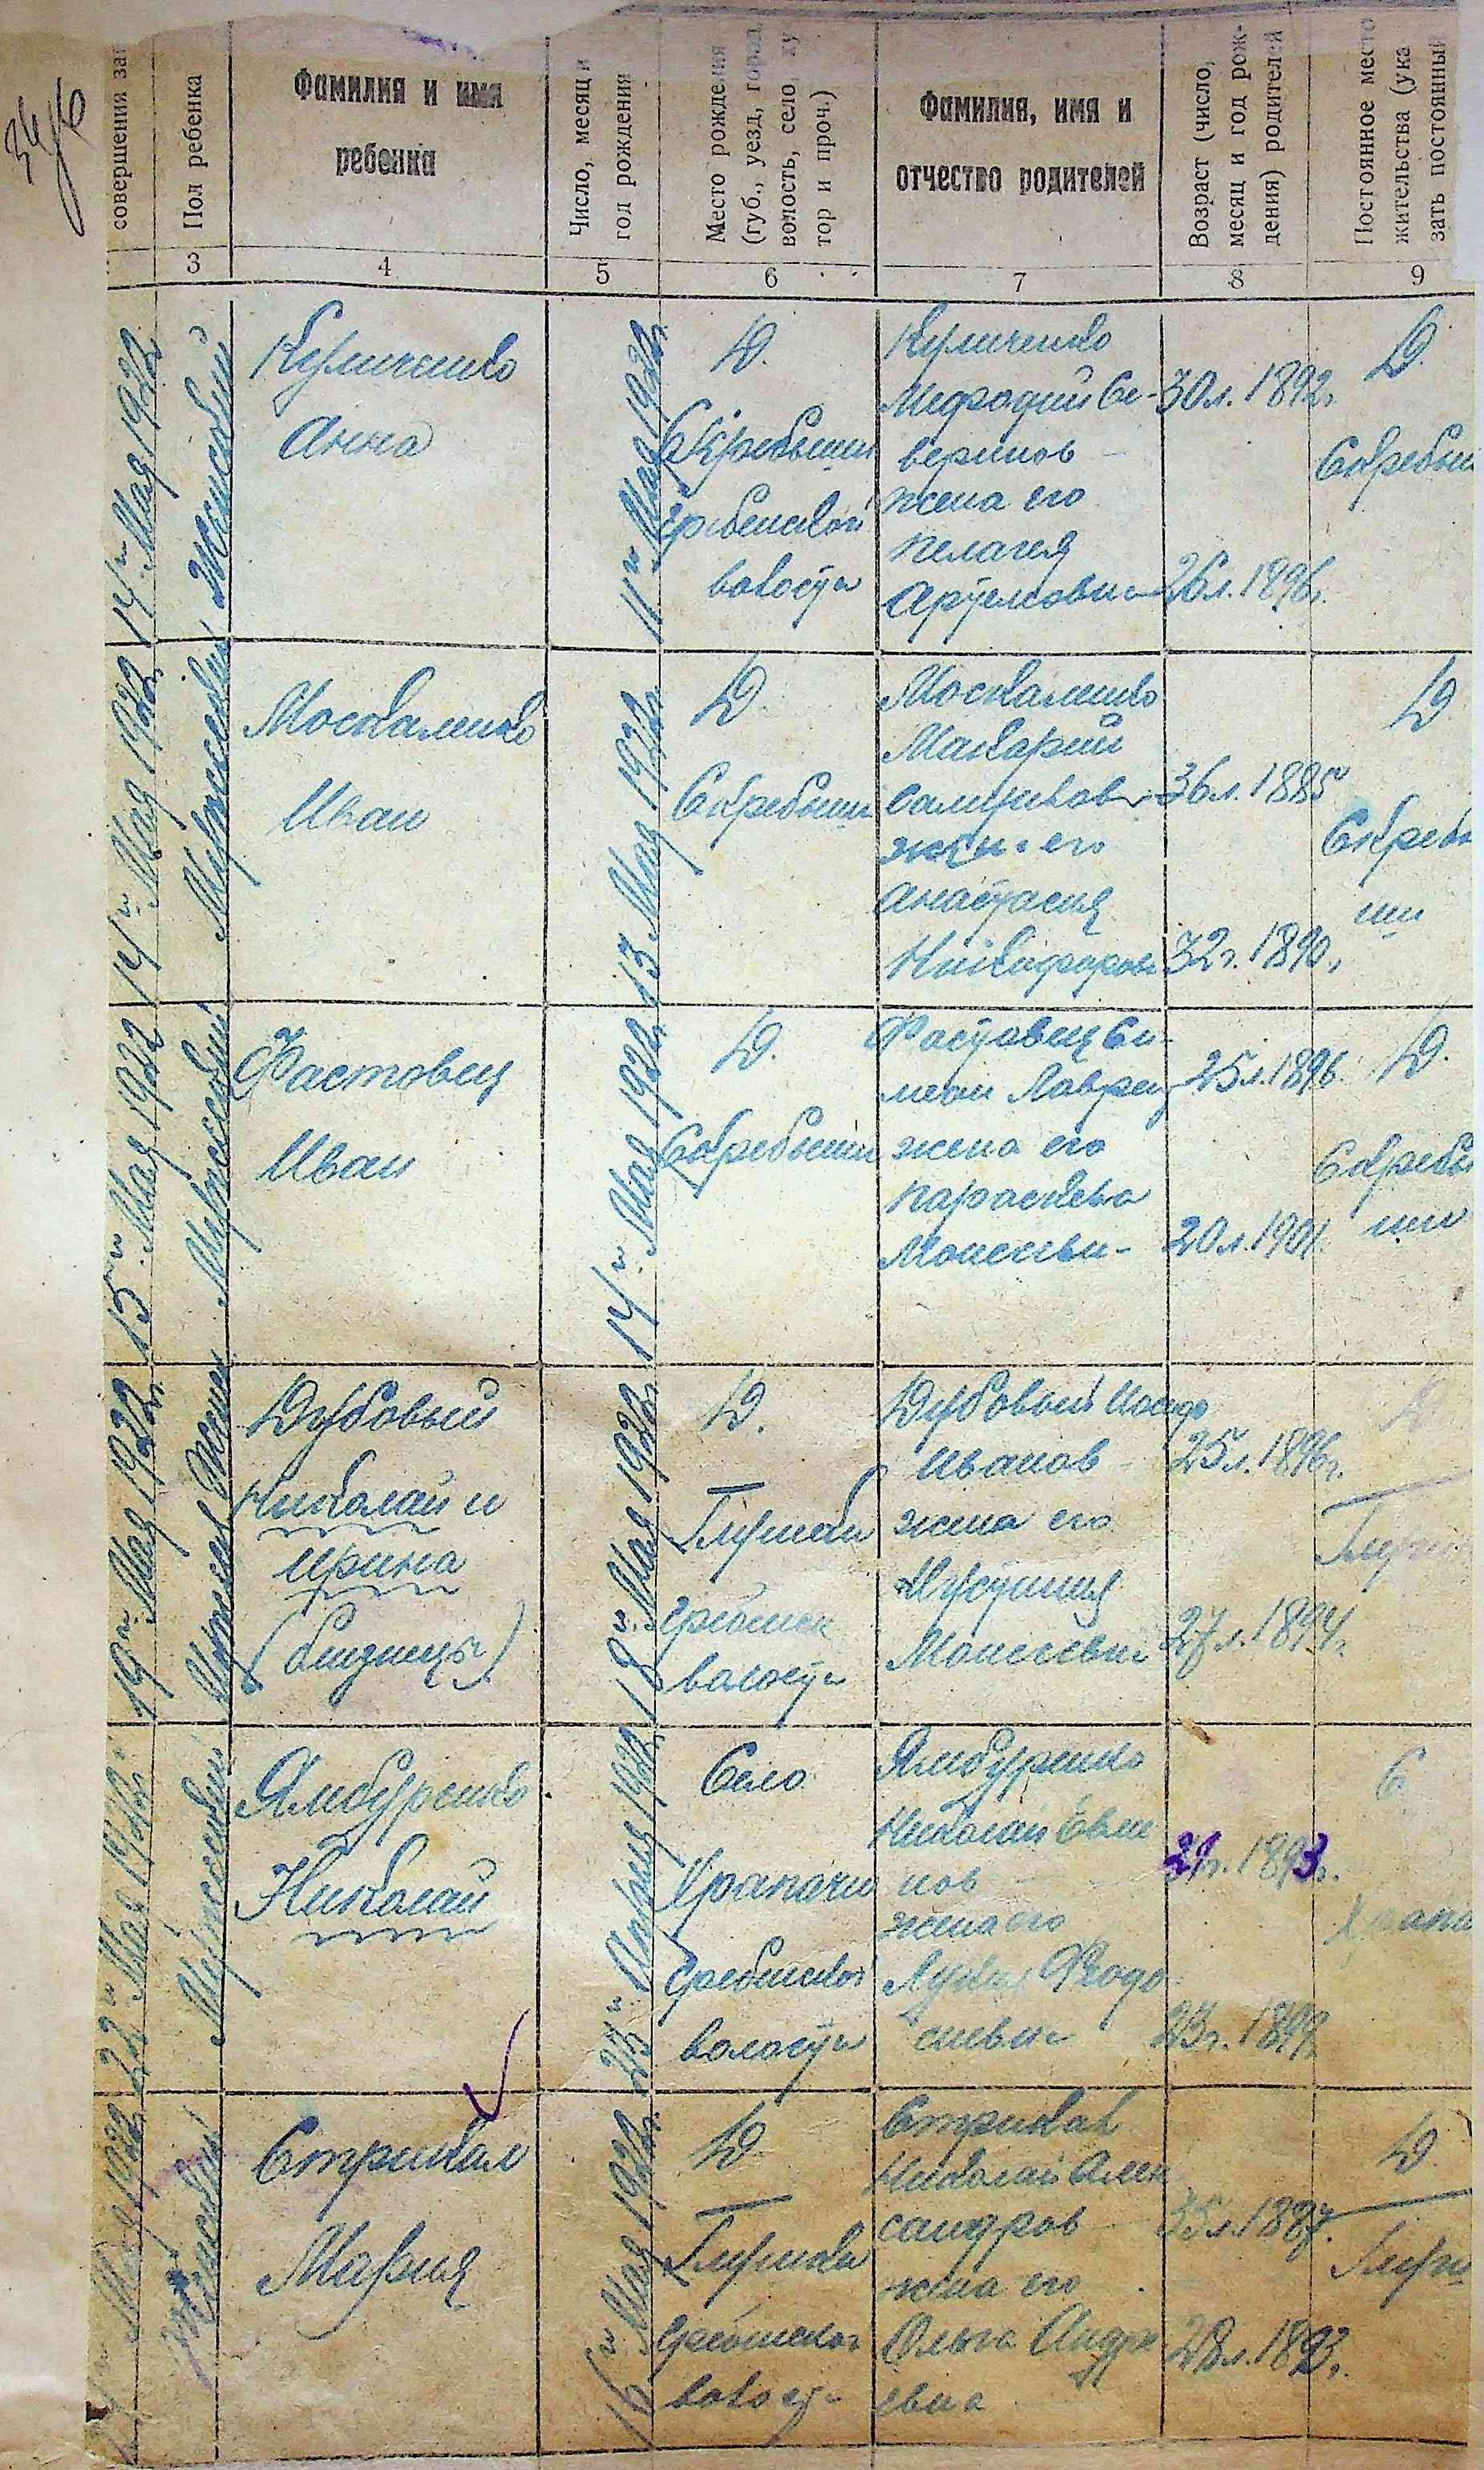 совершения за
Пол ребенка
Фамилия и имя
ребенка
Число, месяц и
год рождения
Место рождения
(губ., уезд, город,
волость, село, ху
тор и проч.)
Фамилия, имя и
отчество родителей
Возраст (число,
месяц и год рож-
дения) родителей
Постоянное место
жительства (ука
зать постоянный
3
4
5
6
7
8
9
14го Мая 1922
Женский
Куличенко
Анна
11го Мая 1922г.
Д.
Скребыши
Гребенской
волости
Куличенко
Мефодий Се-
веринов
жена его
Пелагея
Артемовна
30л. 1892г.
26л. 1896г.
Д.
Скребыш
14го Мая 1922
Мужеский
Москаленко
Иван
13 Мая 1922г.
Д.
Скребыши
Москаленко
Макарий
жена его
Анастасия
36л. 1885
32г. 1890г.
Д
Скребы
ши
15го Мая 1922
Мужеский
Фастовец
Иван
14го Мая 1922г.
Д.
Скребыши
Фастовец Си-
меон Лаврен
жена его
Параскева
Моисеевн-
25л. 1896.
20л. 1901.
Д.
Скребы
ши
19го Мая 1922г.
Дубовый
Николай и
Ирина
(близнецы)
18го Мая 1922г.
Д.
Глушки
Гребенск
волости
Дубовый Иосиф
Иванов
жена его
Иустиния
Моисеевн
25л. 1896г.
27л. 1894г.
22го Мая 1922г.
Мужеский
Ямбуренко
Николай
23го Апреля 1922г.
Село
Храпачи
Гребенской
волости
Ямбуренко
Николай
нов
жена его
Феодо-
сиевна
1893г.
23г. 1899
С.
Мая 1922
Женский
Стрикал
Мария
16го Мая 1922г.
Д
Глушки
Гребенской
волости
Стрикал
Николай Алек
сандров
жена его
Ольга Андре
евна
35л. 1887г.
28л. 1893г.
Д.
Глуш